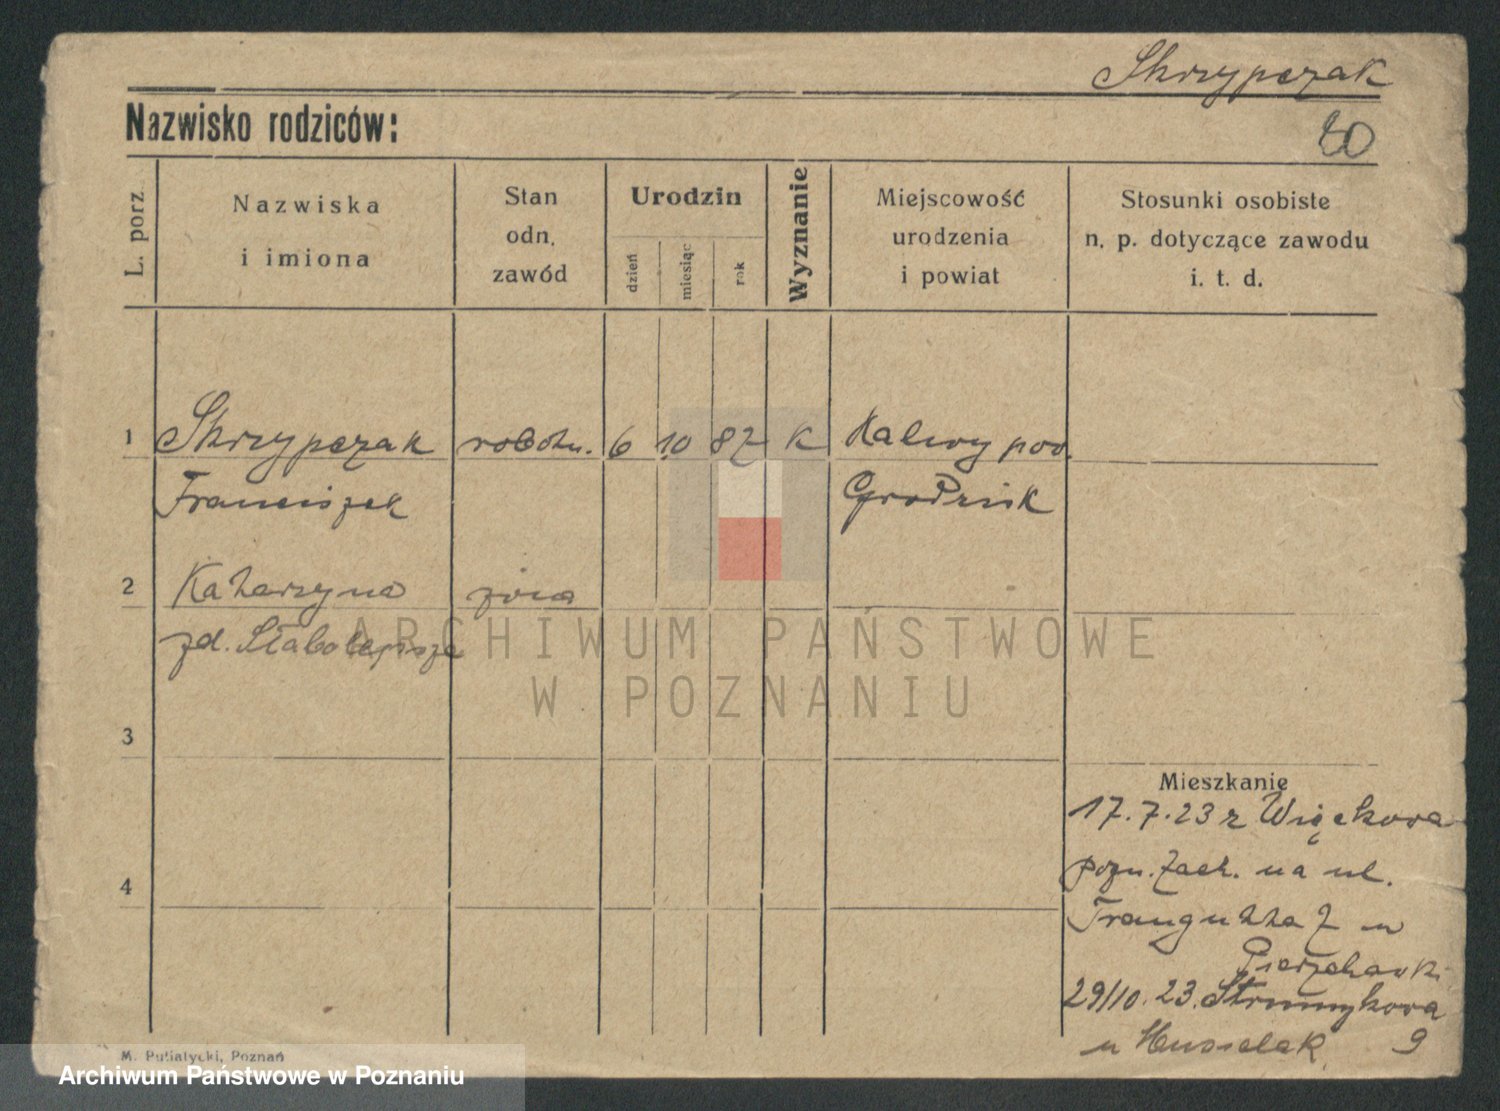 Skrzypczak
Nazwisko rodziców:
80
L. porz
Nazwiska
i imiona
Stan
odn.
zawód
Urodzin
dzień
miesiąc
rok
Wyznanie
Miejscowość
urodzenia
i powiat
Stosunki osobiste
n. p. dotyczące zawodu
i. t. d.
1 Skrzypczak robotn. 6 10 87 K Kalwy pow.
Franciszek Grodzisk
2 Katarzyna żona
zd. Słabolepsza
ARCHIWUM PAŃSTWOWE
W POZNANIU
3
Mieszkanie
17.7.23 z Więckowa
pozn. Zach. na ul.
4
Traugutta 7 u
29/10.23. Strumykowa
u 9
M. Putiatycki, Poznań
Archiwum Państwowe w Poznaniu